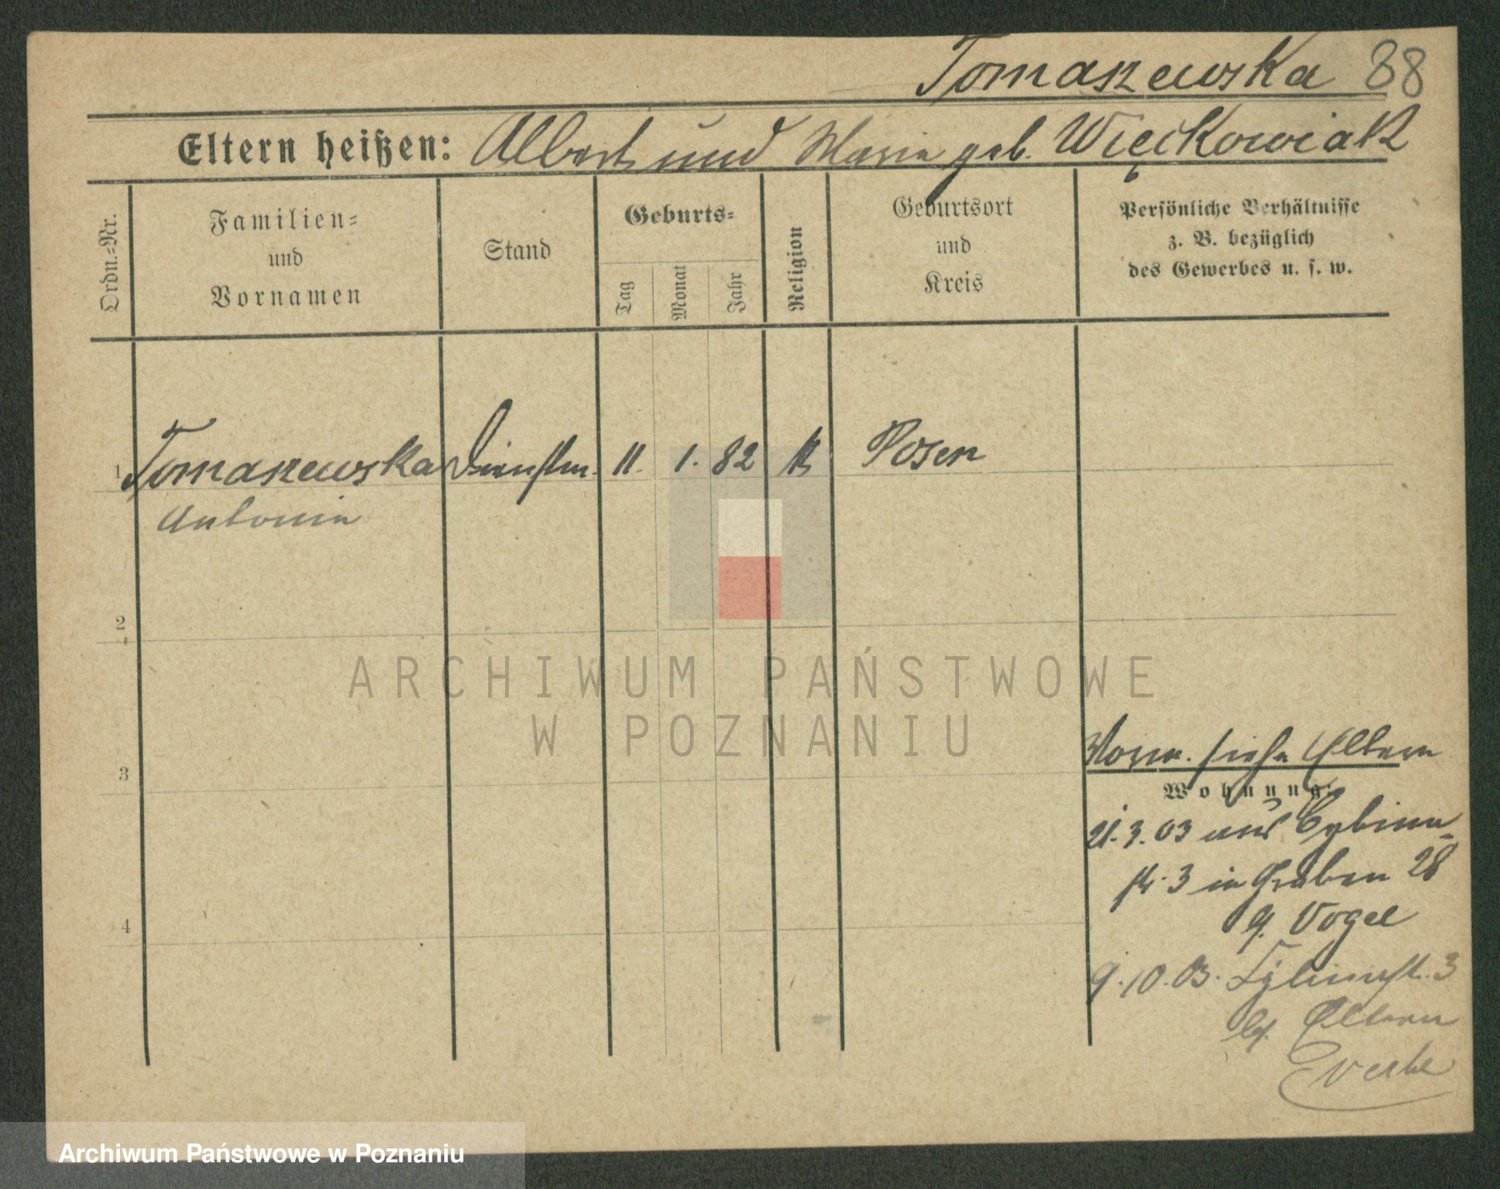 Tomaszewska 88
Eltern heißen: Albert und Marie geb. Więckowiak
Ordn.=Nr.
Familien=
und
Vornamen
Stand
Geburts=
Tag
Monat
Jahr
Religion
Geburtsort
und
Kreis
Persönliche Verhältnisse
z. B. bezüglich
des Gewerbes u. s. w.
1 Tomaszewska Dienstm. 11. 1. 82 k Posen
Antonie
2
3
4
Vorw. siehe Eltern
Wohnung:
21.3.03 aus Cybina-
str. 3 in Graben 28
b. Vogel
9.10.03. Cybinastr. 3
b. Eltern
ARCHIWUM PAŃSTWOWE
W POZNANIU
Archiwum Państwowe w Poznaniu